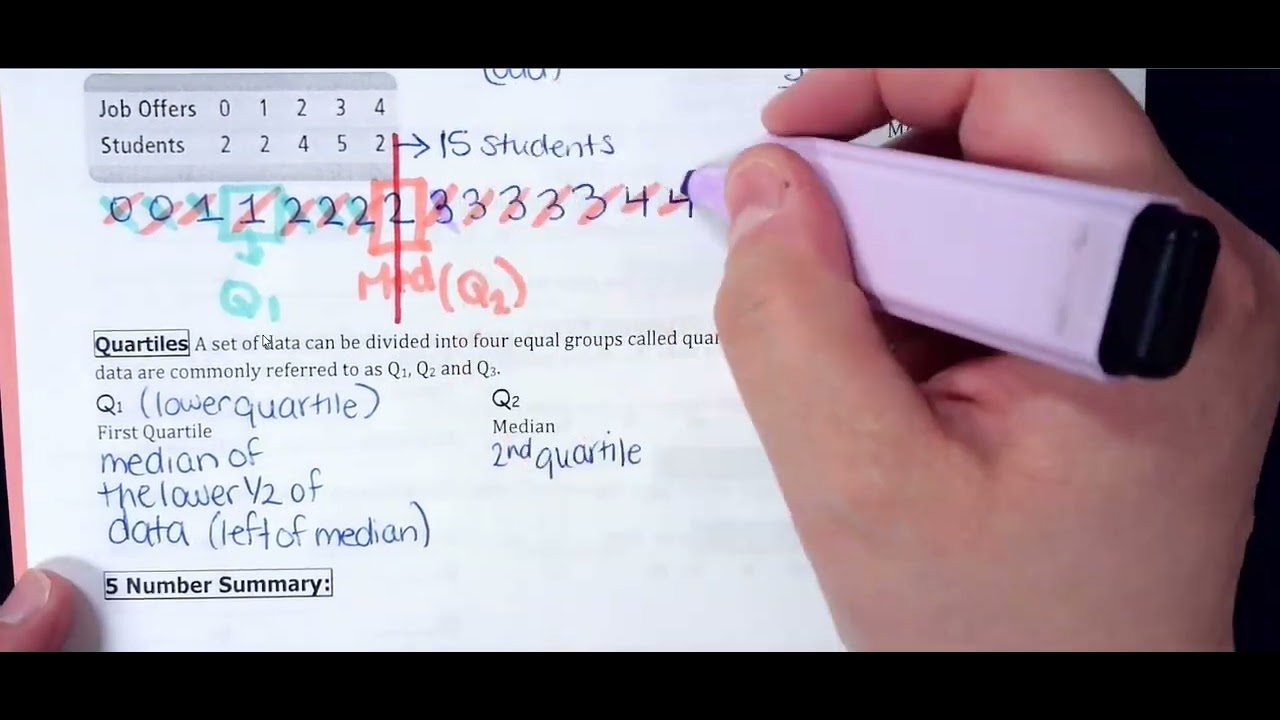 Job Offers 0 1 2 3 4
Students 2 2 4 5 2 → 15 students
0 0 1 1 2 2 2 2 3 3 3 3 3 4 4
Q1 Med (Q2)
Quartiles A set of data can be divided into four equal groups called
data are commonly referred to as Q1, Q2 and Q3.
Q1 (lower quartile) Q2
First Quartile Median
median of 2nd quartile
the lower 1/2 of
data (left of median)
5 Number Summary: